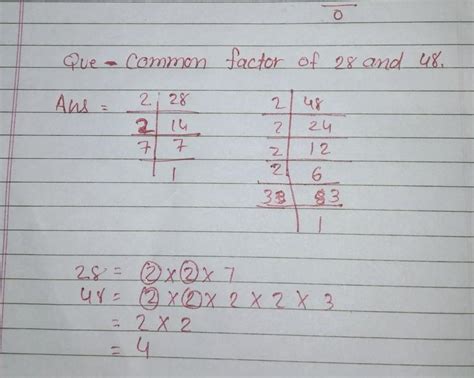 0
Que - Common factor of 28 and 48.
Ans = 2 | 28 2 | 48
2 | 14 2 | 24
7 | 7 2 | 12
1 2 | 6
3 | 3
1
28 = 2 × 2 × 7
48 = 2 × 2 × 2 × 2 × 3
= 2 × 2
= 4